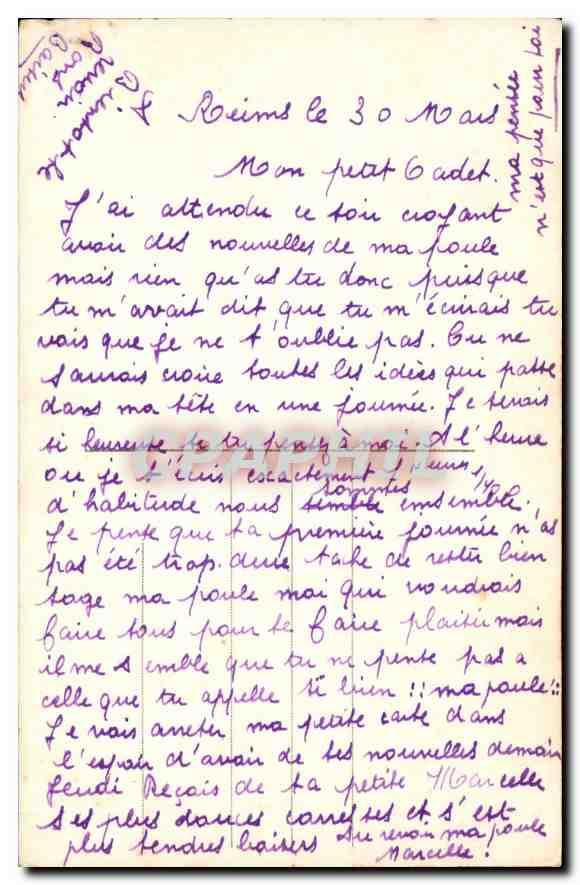 Reims le 30 Mars
Mon petit Cadet.
J'ai attendu ce soir croyant
avoir des nouvelles de ma poule
mais rien qu'as tu donc puisque
tu m'avait dit que tu m'écrirais tu
vois que je ne t'oublie pas. Tu ne
saurais croire toutes les idées qui passe
dans ma tête en une journée. Je serais
si heureuse si tu pense à moi. A l'heure
ou je t'écris exactement 1 heures 1/2
d'habitude nous sommes ensemble.
Je pense que ta première journée n'as
pas été trop dure tache de rester bien
sage ma poule moi qui voudrais
faire tous pour te faire plaisir mais
il me semble que tu ne pense pas a
celle que tu appelle si bien !! ma poule !!
Je vais arreter ma petite carte dans
l'espoir d'avoir de tes nouvelles demain
Jeudi Reçois de ta petite Marcelle
ses plus douces carresses et s'est
plus tendres baisers Au revoir ma poule
Marcelle.
ma pensée
n'est que pour toi
Bientot
Revoir
Bons
Baisers
CPAPHIL